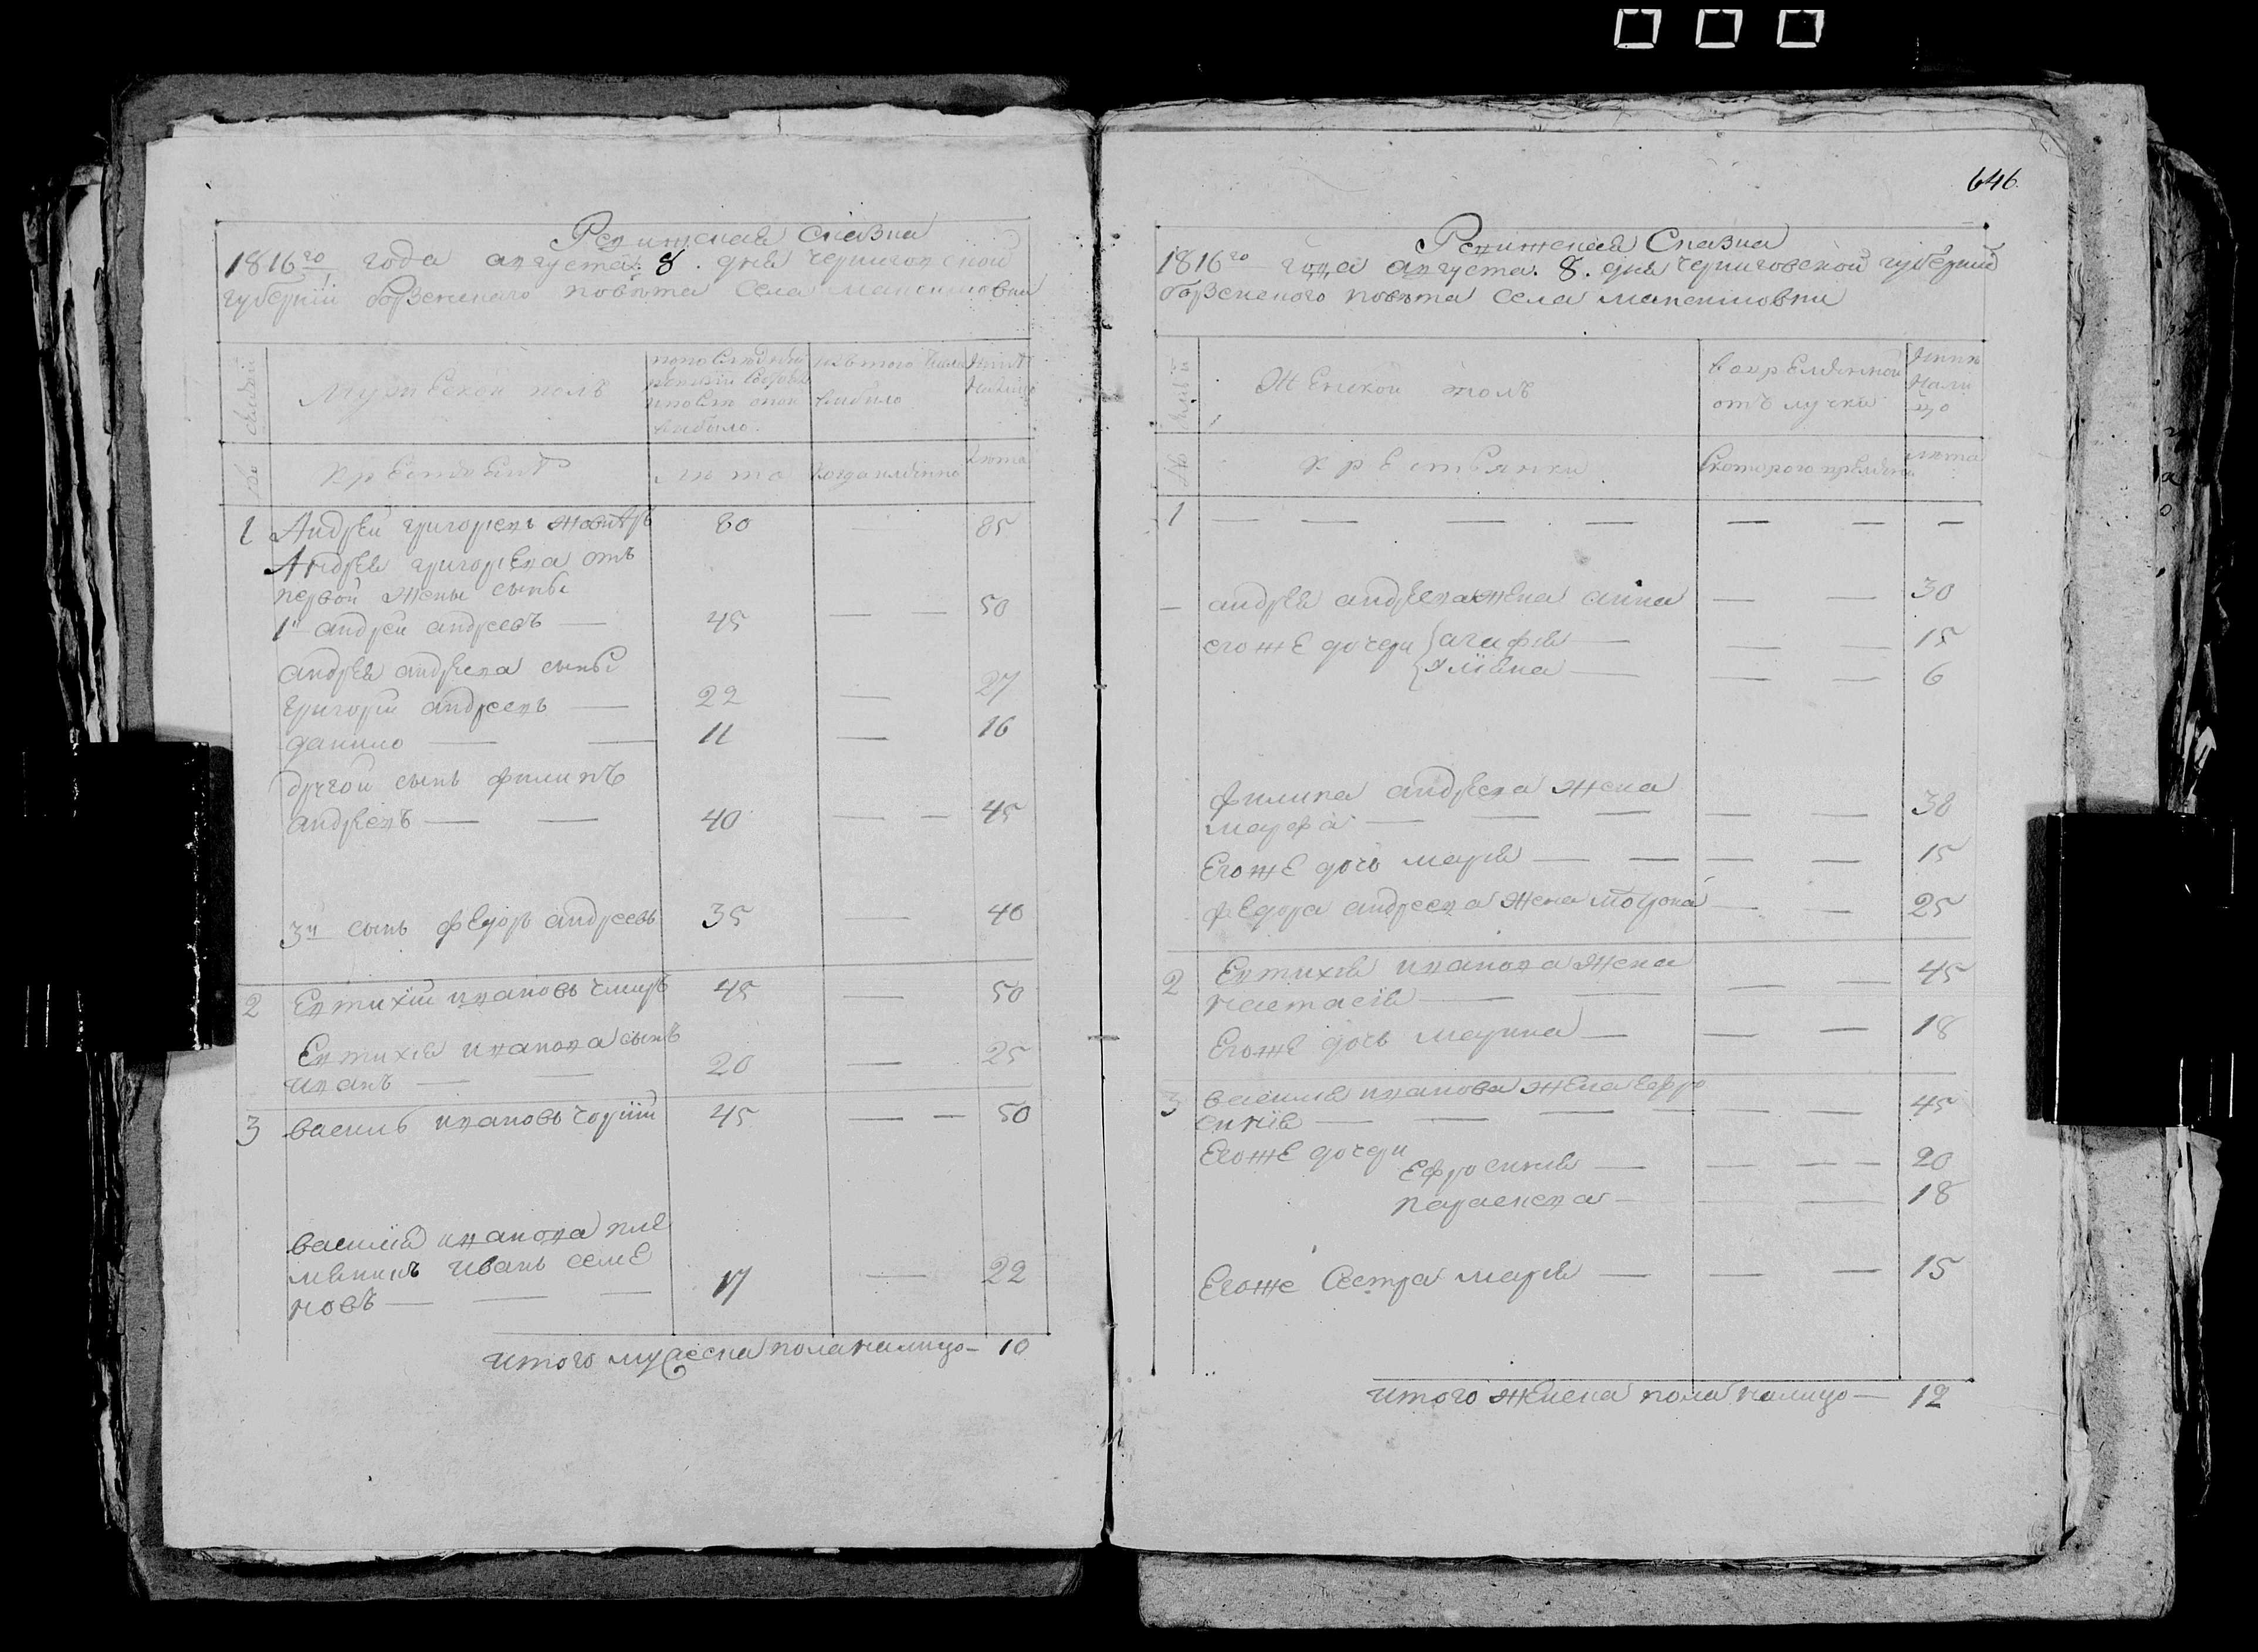 Ревижская сказка
1816го года августа 8. дня черниговской
губернїи борзенскаго повѣта села максимовки
мужескои полъ
изъ того числа
выбыло
нынѣ
налицо
крестьяне
лѣта
когда именно
лѣта
1 Андрей григорьевъ 80 — 85
Андрея григорьева отъ
первой жены сыны
1й андрей андреевъ — 45 — — 50
андрея андреева сыны
григорїй андреевъ — 22 — 27
данило — — 11 — 16
другой сынъ филипъ
андреевъ — — 40 — — 45
3й сынъ федоръ андреевъ 35 — 40
2 Евтихїй ивановъ 45 — 50
Евтихїя иванова сынъ
иванъ — — 20 — 25
3 василь ивановъ 45 — — 50
василия иванова пле
мѣникъ иванъ семе
новъ — — — 17 — 22
итого мужеска пола налицо — 10
646.
Ревижская Сказка
1816го года августа. 8. дня черниговской губернїи
борзенского повѣта села максимовки
Женской полъ
во временной
отлучки
нынѣ
нали
цо
№
крестьянки
с котораго времени
лѣта
1 — — — — — — —
— андрея андреева жена анна — — 30
егоже дочери агафия — — — 15
— — — 6
филипа андреева жена
марфа — — — — — 38
Егоже дочь мария — — — — 15
федора андреева жена — — 25
2 Евтихия иванова жена
настасїя — — — — 45
Егоже дочь марина — — — 18
3 василия иванова жена Ефро
синїя — — — — — 45
Егоже дочери
Ефросиния — — — — 20
параскева — — — 18
Егоже Сестра мария — — — 15
итого женска пола налицо — 12